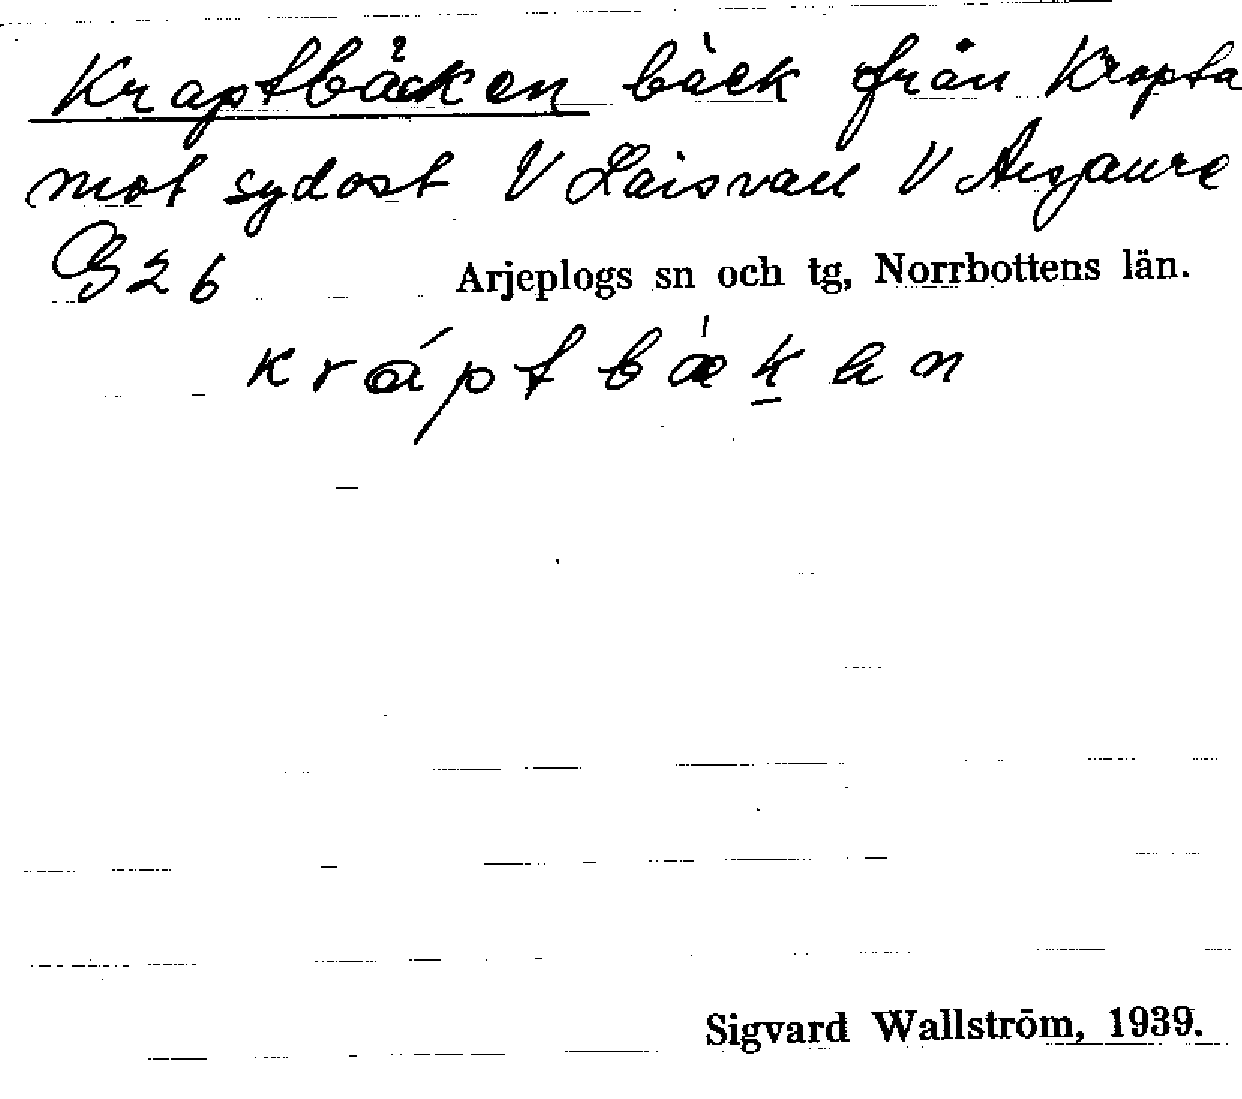 Kraptbäcken bäck från Krapta
mot sydost V Laisvall V Aisjaure
G 26 Arjeplogs sn och tg, Norrbottens län.
kráptbæ'kan
Sigvard Wallström, 1939.